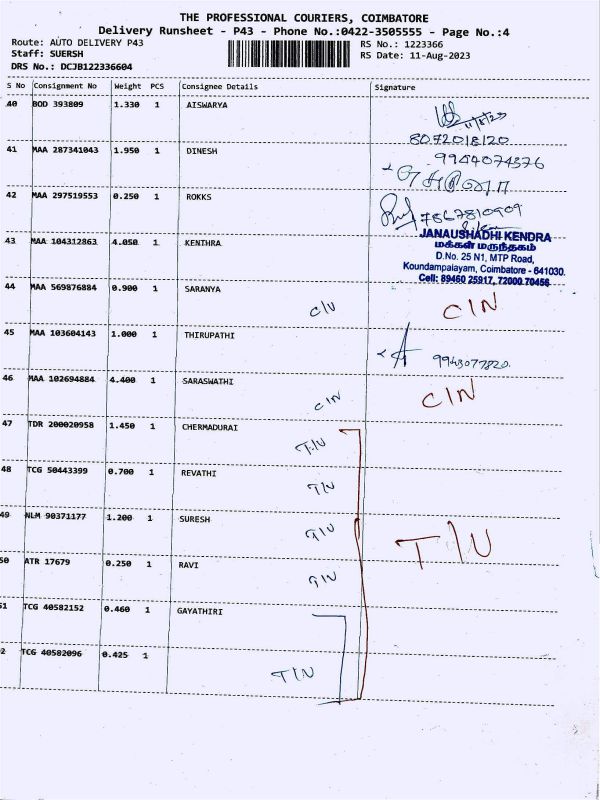 THE PROFESSIONAL COURIERS, COIMBATORE
Delivery Runsheet - P43 - Phone No.:0422-3505555 - Page No.:4
Route: AUTO DELIVERY P43
RS No.: 1223366
Staff: SUERSH
RS Date: 11-Aug-2023
DRS No.: DCJB122336604
S No Consignment No Weight PCS Consignee Details Signature
40 BOD 393809 1.330 1 AISWARYA
11/8/23
8072018120
41 MAA 287341043 1.950 1 DINESH
9944074376
42 MAA 297519553 0.250 1 ROKKS
7867810909
43 MAA 104312863 4.050 1 KENTHRA
JANAUSHADHI KENDRA
மக்கள் மருந்தகம்
D.No. 25 N1, MTP Road,
Koundampalayam, Coimbatore - 641030.
Cell: 89460 25917, 72000 70456
44 MAA 569876884 0.900 1 SARANYA
C/N C/N
45 MAA 103604143 1.000 1 THIRUPATHI
9943077820
46 MAA 102694884 4.400 1 SARASWATHI
C/N C/N
47 TDR 200020958 1.450 1 CHERMADURAI
T/N
48 TCG 50443399 0.700 1 REVATHI
T/N
49 NLM 90371177 1.200 1 SURESH
T/N T/N
50 ATR 17679 0.250 1 RAVI
T/N
51 TCG 40582152 0.460 1 GAYATHIRI
2 TCG 40582096 0.425 1
T/N